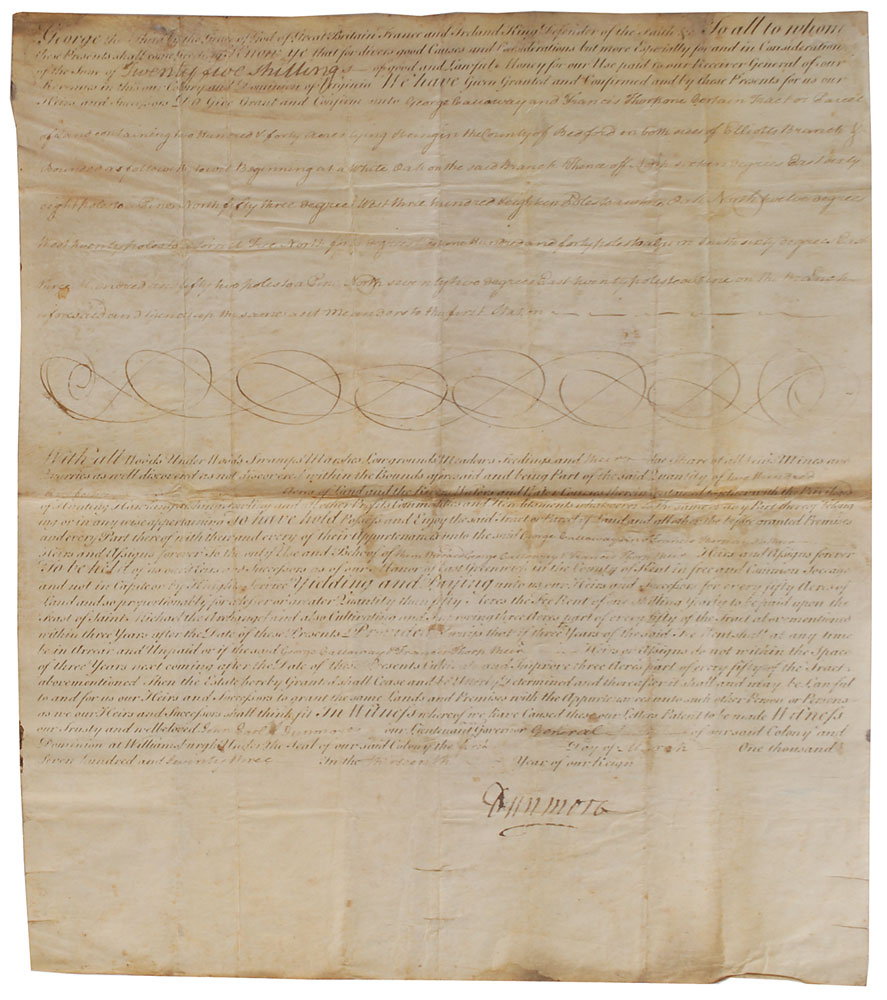 George the Third by the Grace of God of Great Britain France and Ireland King Defender of the Faith &c To all to whom
these Presents shall come Greeting Know ye that for divers good Causes and Considerations but more Especially for and in Consideration
of the Sum of Twenty five Shillings of good and Lawful Money for our Use paid to our Receiver General of our
Revenues in this our Colony and Dominion of Virginia We have Given Granted and Confirmed and by these Presents for us our
Heirs and Successors Do Give Grant and Confirm unto George Callaway and Francis Thorp one Certain Tract or Parcel
of Land containing two Hundred & forty Acres lying & being in the County of Bedford on both sides of Elliotts Branch &
Bounded as followeth towit Beginning at a White Oak on the said Branch Thence off North degrees East sixty
eight poles to a Pine North fifty three degrees West three hundred & eighteen Poles to a White Oak North twelve degrees
West twenty poles to a Pine North forty degrees one Hundred and forty poles South sixty degrees East
three Hundred and fifty two poles to a Pine North seventy two degrees East twenty poles to a Pine on the Branch
aforesaid and thence up the same as it Meanders to the first Station
With all Woods Under Woods Swamps Marshes Lowgrounds Meadows Feedings and his due Share of all Veins Mines and
Quarries as well discovered as not discovered within the Bounds aforesaid and being Part of the said Quantity of two Hundred
Acres of Land and the Rivers Waters and Water Courses therein contained together with the Priviledges
of Hunting Hawking Fishing Fowling and all other Profits Commodities and Hereditaments whatsoever to the same or any Part thereof belong
ing or in any wise appertaining To have hold Possess and Enjoy the said Tract or Parcel of Land and all other the before granted Premises
and every Part thereof with their and every of their Appurtenances unto the said George Callaway and Francis Thorp
Heirs and Assigns forever To the only Use and Behoof of the said George Callaway & Francis Thorp their Heirs and Assigns forever
To be held of us our Heirs and Successors as of our Manor of East Greenwich in the County of Kent in free and Common Soccage
and not in Capite or by Knights Service Yielding and Paying unto us our Heirs and Successors for every fifty Acres of
Land and so proportionably for a lesser or greater Quantity than fifty Acres the Fee Rent of one Shilling Yearly to be paid upon the
Feast of Saint Michael the Archangel and also Cultivating and Improving three Acres part of every fifty of the Tract abovementioned
within three Years after the Date of these Presents Provided always that if three Years of the said Fee Rent shall at any time
be in Arrear and Unpaid or if the said George Callaway & Francis Thorp their Heirs or Assigns do not within the Space
of three Years next coming after the Date of these Presents Cultivate and Improve three Acres part of every fifty of the Tract
abovementioned Then the Estate hereby Granted shall Cease and be Utterly Determined and thereafter it shall and may be Lawful
to and for us our Heirs and Successors to grant the same Lands and Premises with the Appurtenances unto such other Person or Persons
as we our Heirs and Successors shall think fit In Witness whereof we have Caused these our Letters Patent to be made Witness
our Trusty and wellbeloved John Earl of Dunmore our Lieutenant Governor General of our said Colony and
Dominion at Williamsburgh Under the Seal of our said Colony the Day of March One thousand
Seven hundred and Seventy three In the thirteenth Year of our Reign
Dunmore